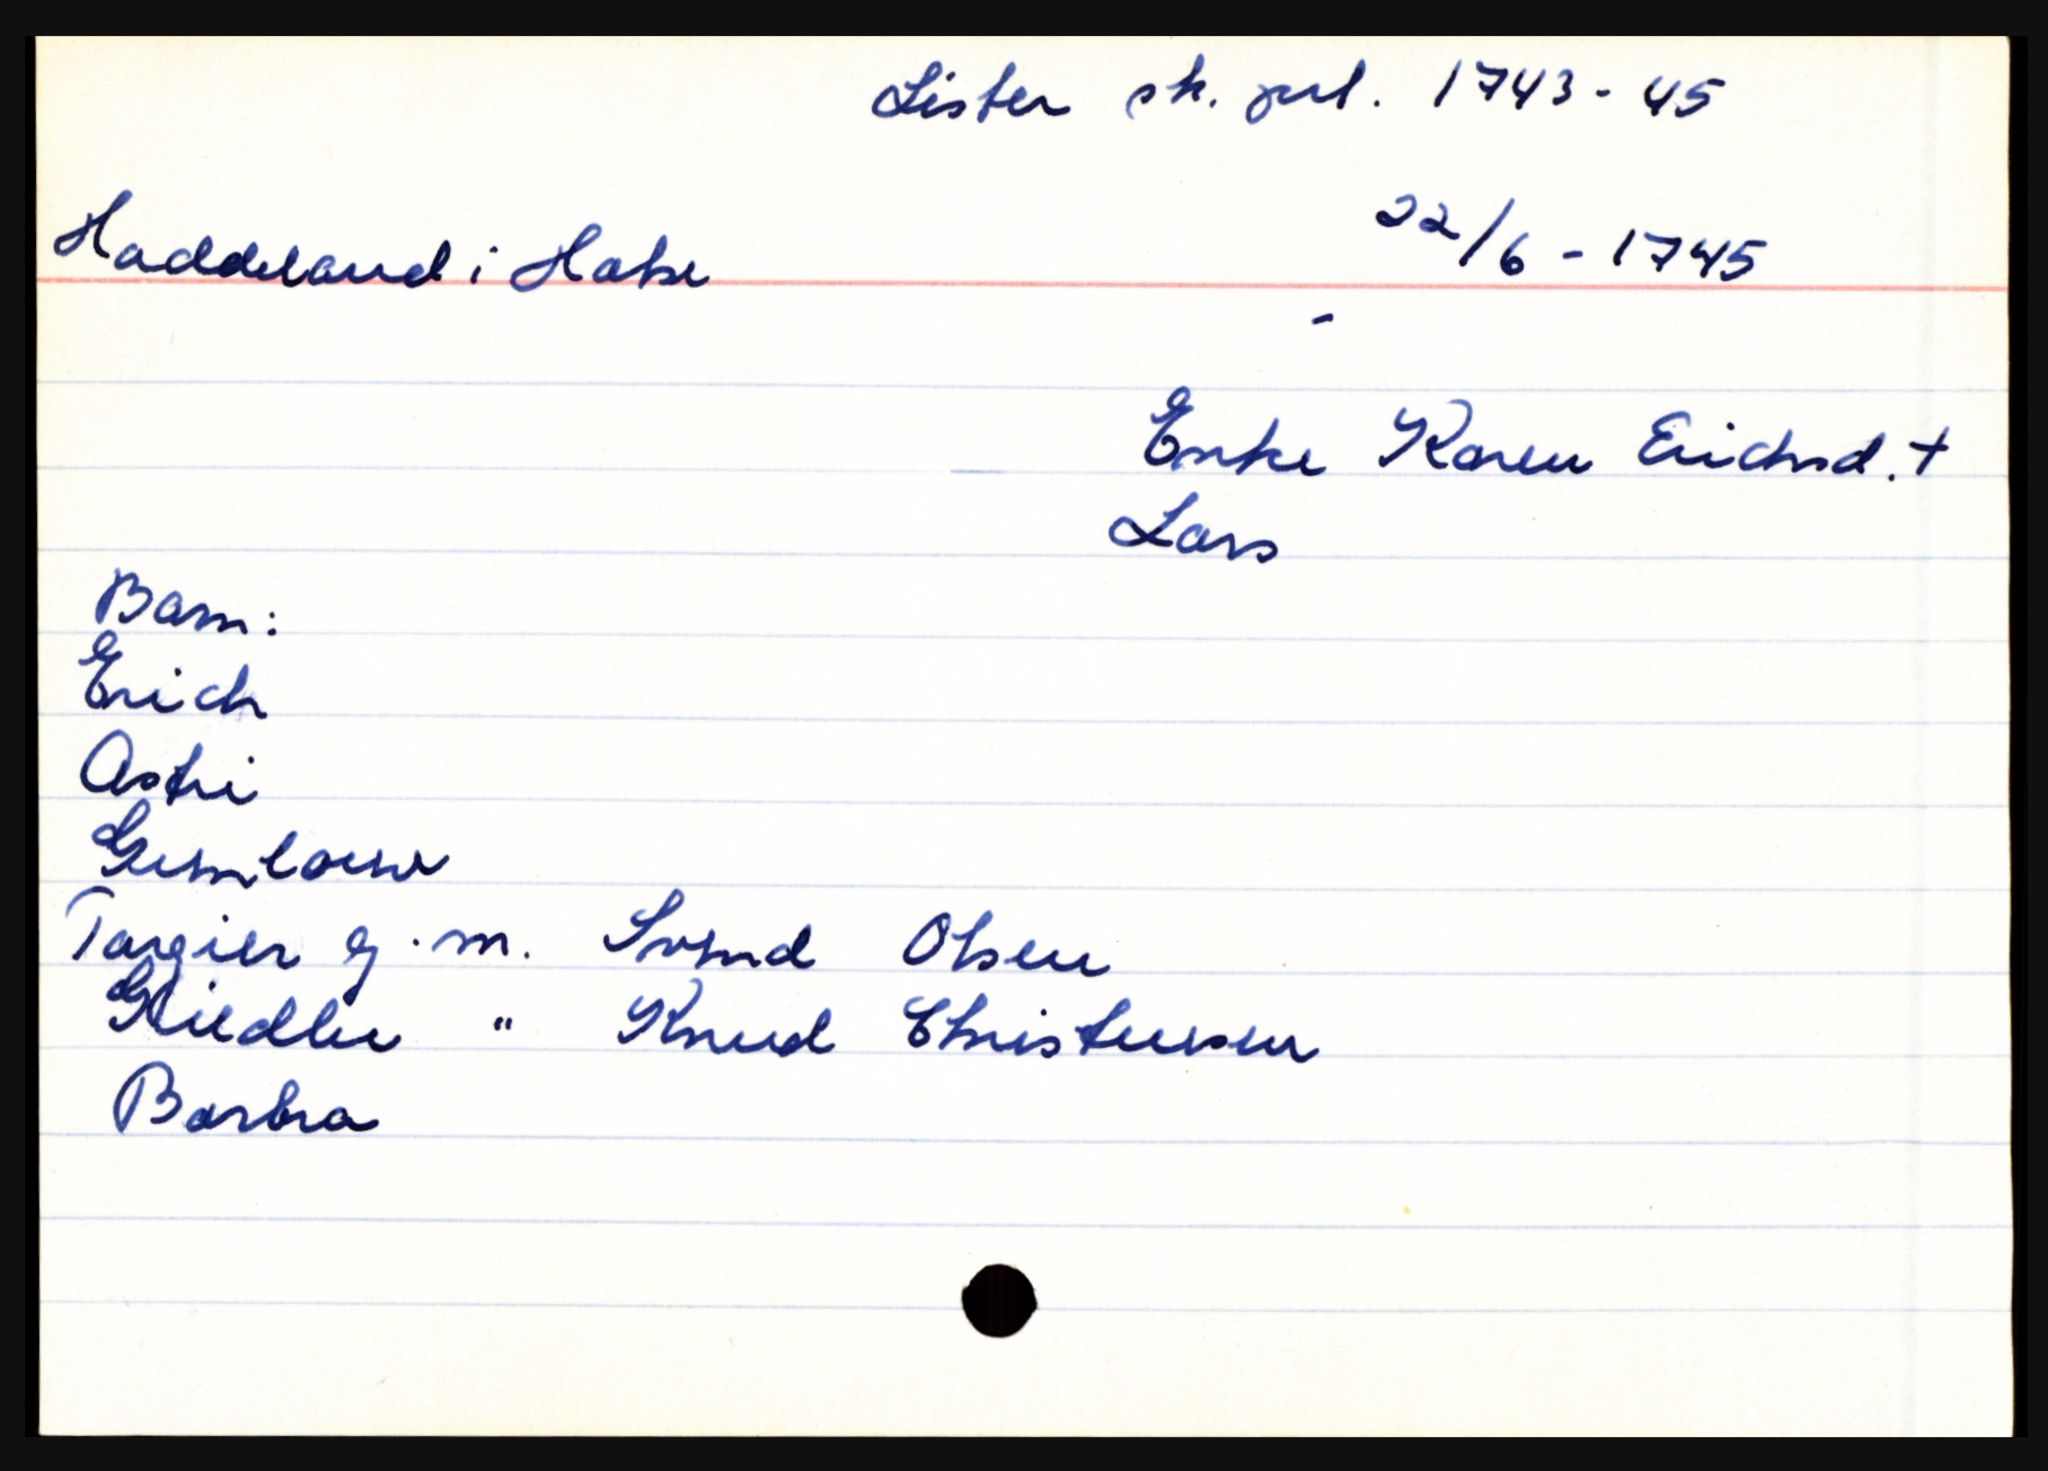 Lister sk. prl. 1743-45
Haddeland i Halse 22/6 - 1745
-
Enke Karen Erichsd. +
Lars
Barn:
Erich
Astri
Gunlaur
Targier g. m. Svend Olsen
" Knud Christensen
Barbra